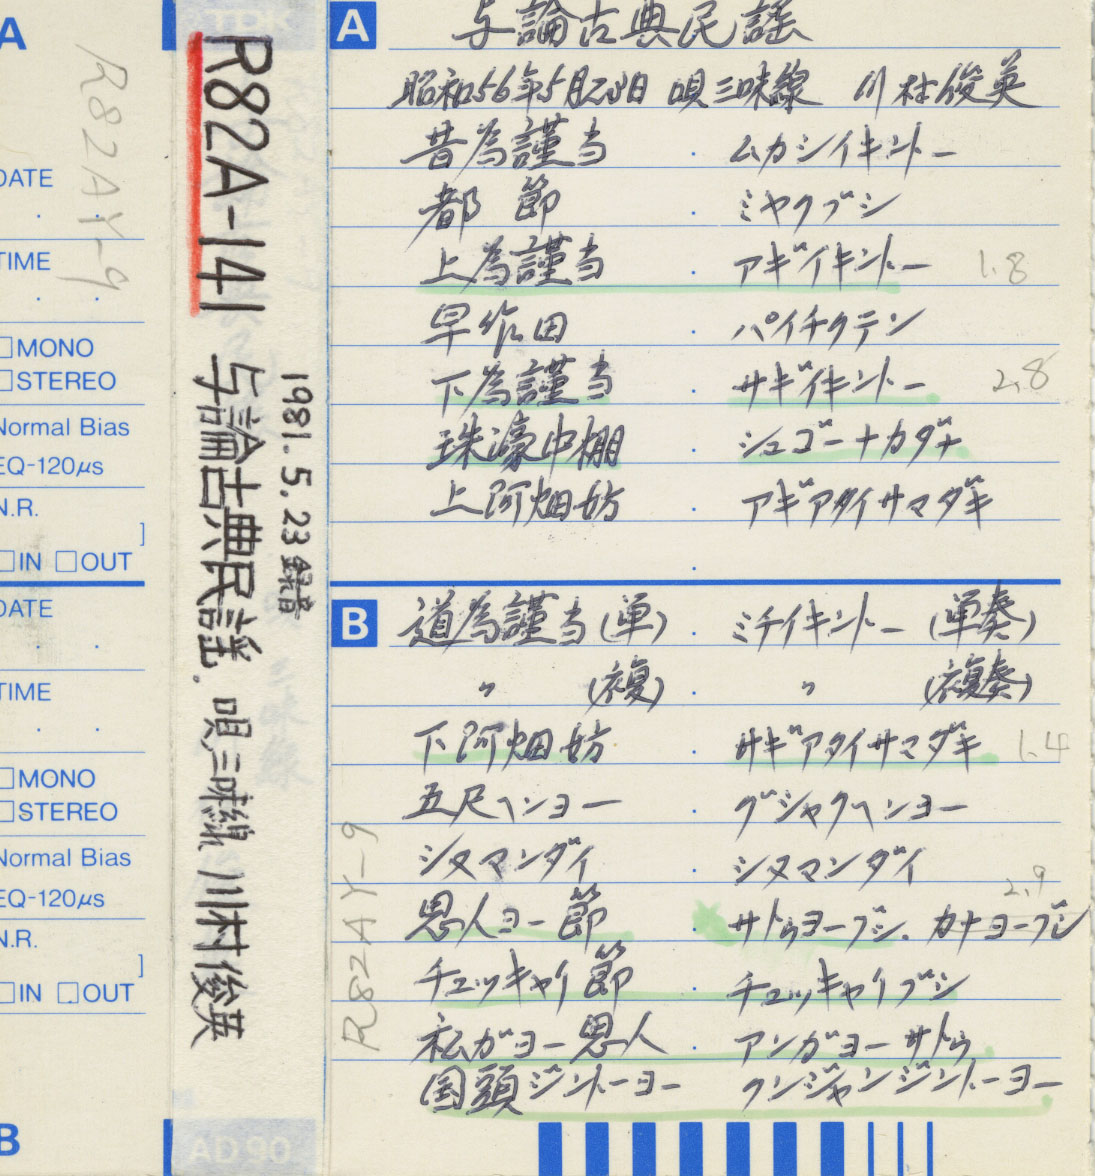 A
R82AY-9
DATE
TIME
MONO
STEREO
Normal Bias
EQ-120μs
N.R.
]
IN OUT
DATE
TIME
MONO
STEREO
Normal Bias
EQ-120μs
N.R.
]
IN OUT
B
TDK
R82A-141 与論古典民謡. 唄三味線 川村俊英
1981.5.23録音
AD90
A 与論古典民謡
昭和56年5月23日 唄三味線 川村俊英
昔為謹当 ・ ムカシイキントー
都節 ・ ミヤクブシ
上為謹当 ・ アギイキントー 1.8
早作田 ・ パイチクテン
下為謹当 ・ サギイキントー 2.8
珠濠中棚 ・ シュゴーナカダナ
上阿畑妨 ・ アギアタイサマダキ
B 道為謹当(単) ・ ミチイキントー (単奏)
〃 (複) ・ 〃 (複奏)
下阿畑妨 ・ サギアタイサマダキ 1.4
五尺ヘンヨー ・ グシャクヘンヨー
シヌマンダイ ・ シヌマンダイ
思人ヨー節 サトゥヨーブシ. カナヨーブシ 2.9
チュッキャイ節 ・ チュッキャイブシ
私がヨー思人 ・ アンガヨーサトゥ
国頭ジントーヨー クンジャンジントーヨー
R82AY-9